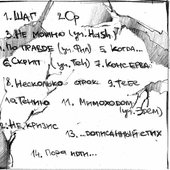 1. ШАГ 2. Ор
3. НЕ МОЛЧИ (уч. Hash)
4. ПО ПРАВДЕ (уч. Фил) 5. КОГДА...
6. СКРИПТ (уч. Тен) 7. КОНСЕРВА
8. НЕСКОЛЬКО СТРОК 9. ТЕБЕ
10. ТЕЧЕНИЮ 11. МИМОХОДОМ
(уч. Эдем)
12. НЕ КРИЗИС
13. ...ДОПИСАННЫЙ СТИХ
14. Пора идти...